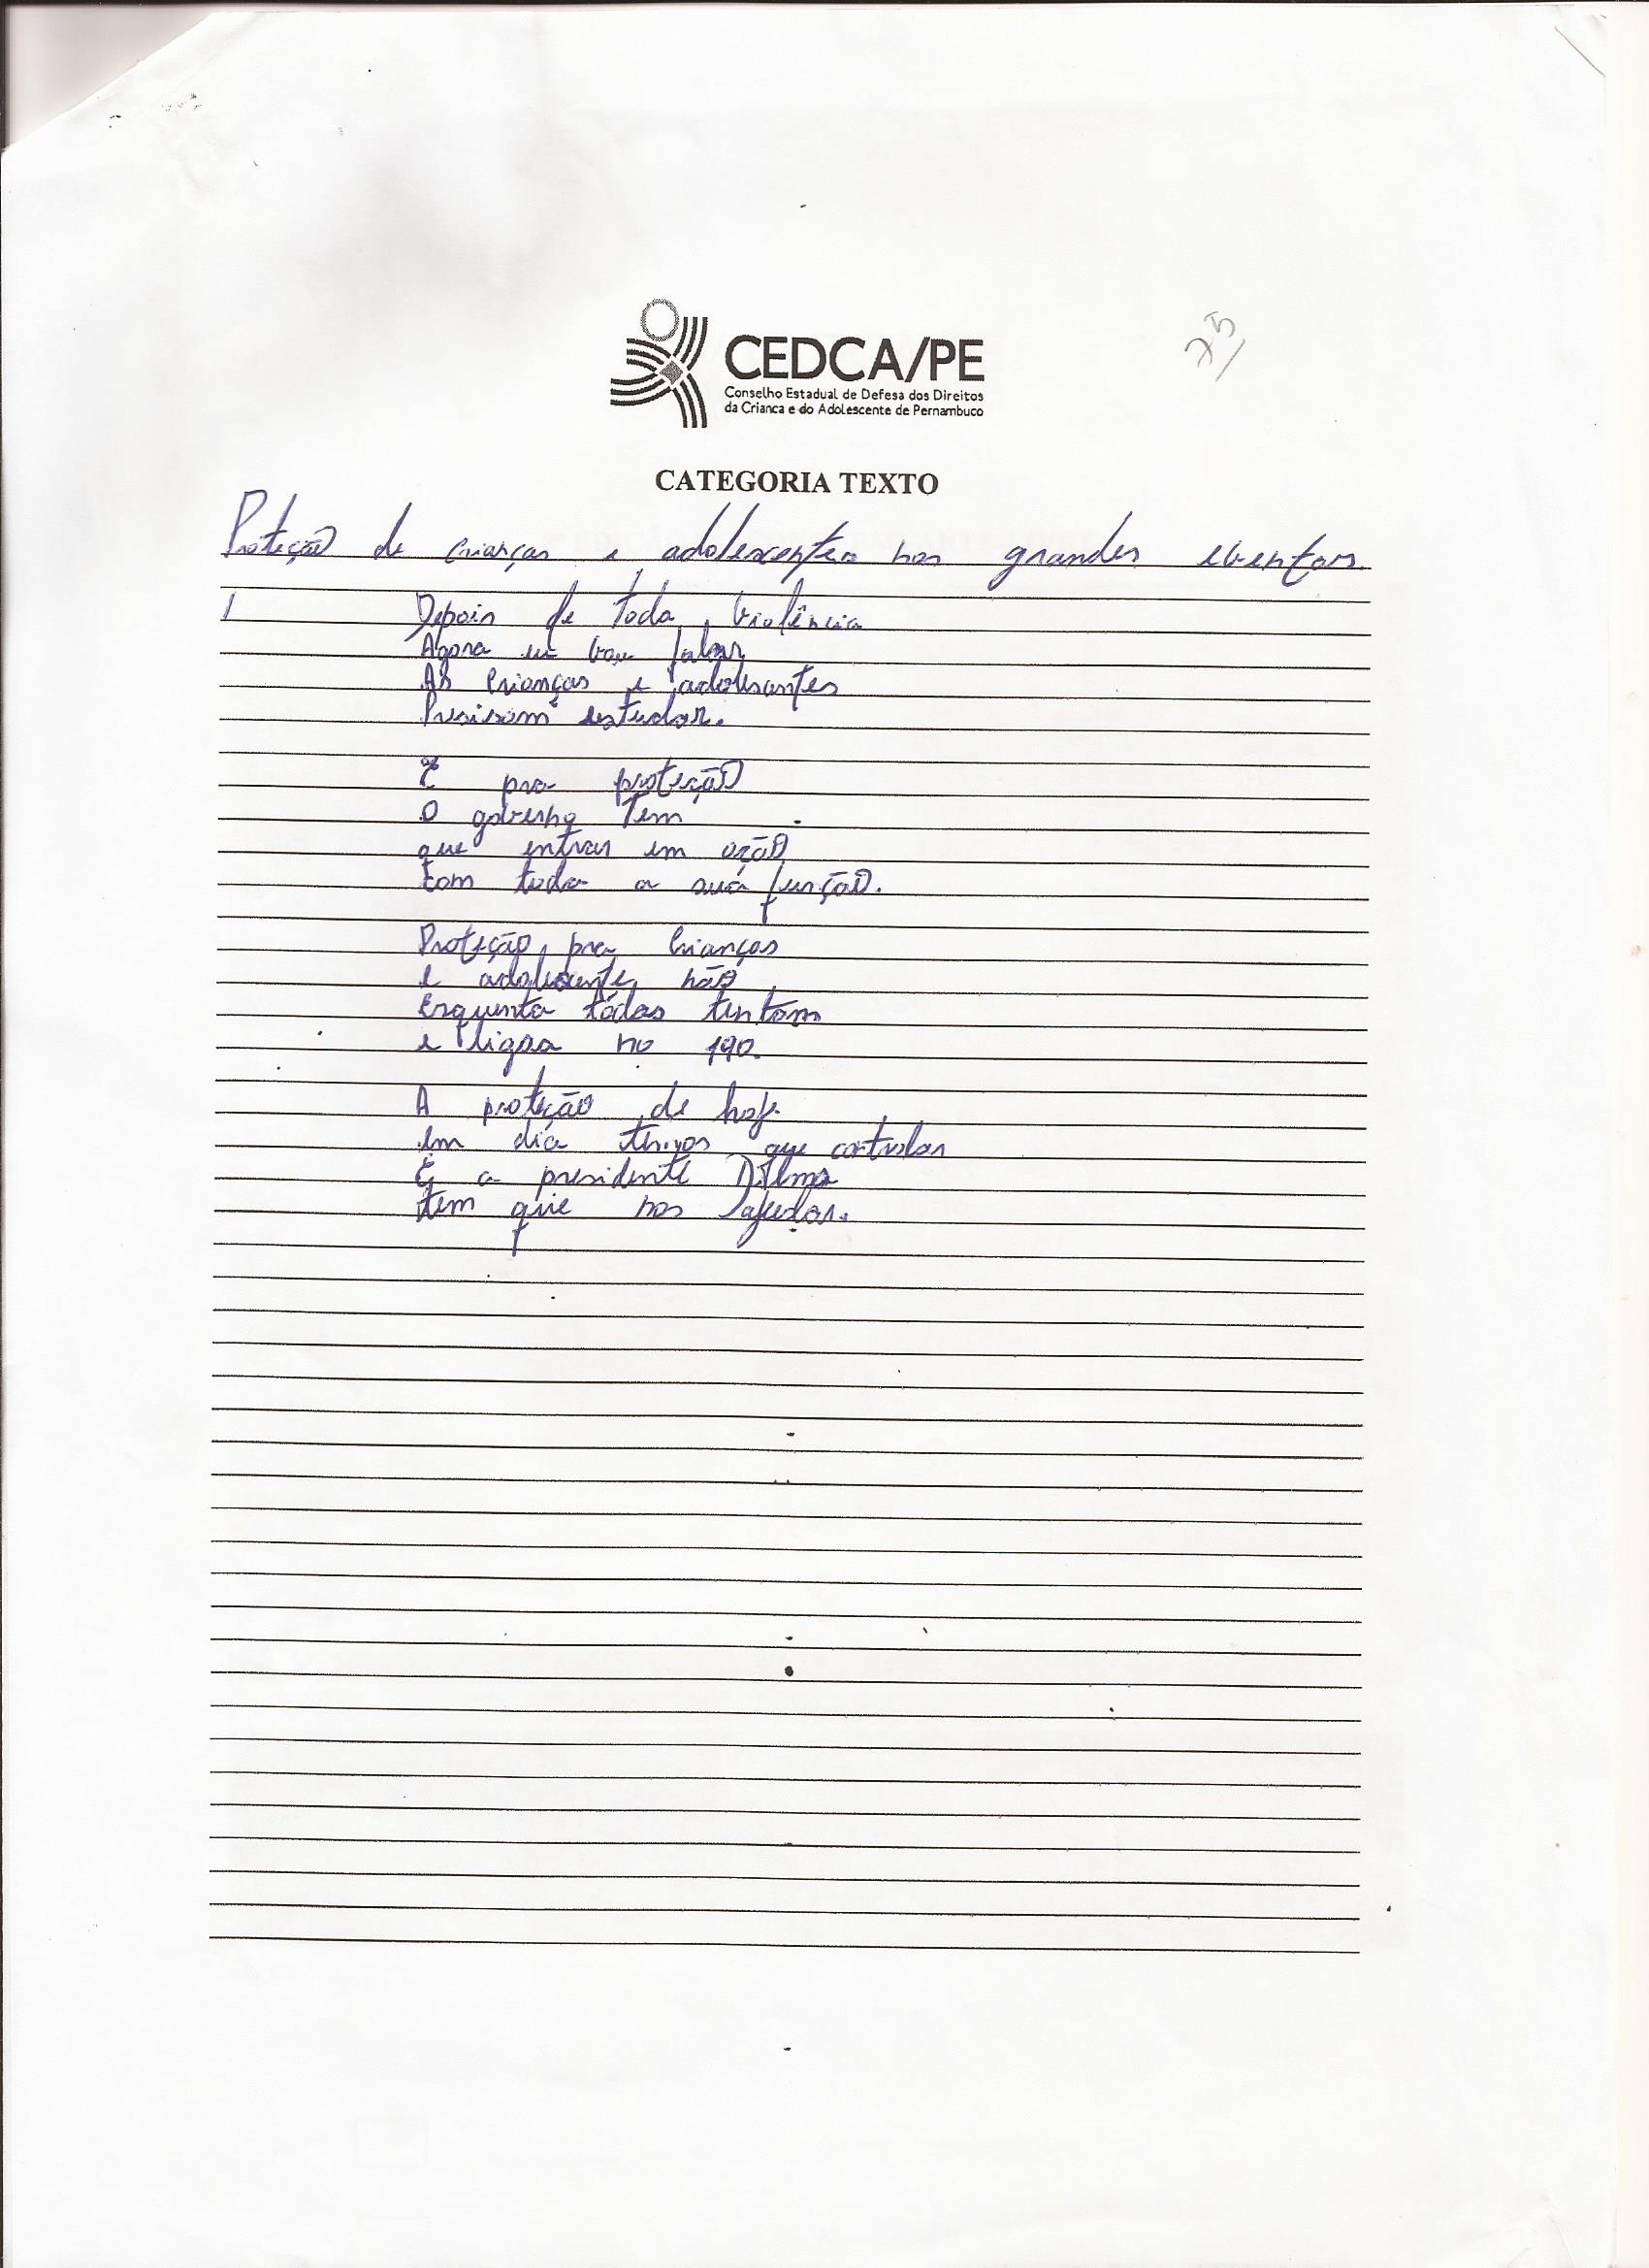 CEDCA/PE
Conselho Estadual de Defesa dos Direitos
da Criança e do Adolescente de Pernambuco
75
CATEGORIA TEXTO
Proteção de crianças e adolescentes nos grandes eventos.
1 Depois de toda violência
Agora eu vou falar
As Crianças e adolesantes
Presisam estudar.
E pra proteção
O governo tem
que entrar em ação
com toda a sua função.
Proteção pra Crianças
e adolescente não
Esquenta todos tentam
e ligaa no 190.
A proteção de hoje
em dia temos que controlar
E a presidente Dilma
tem que nos ajudar.